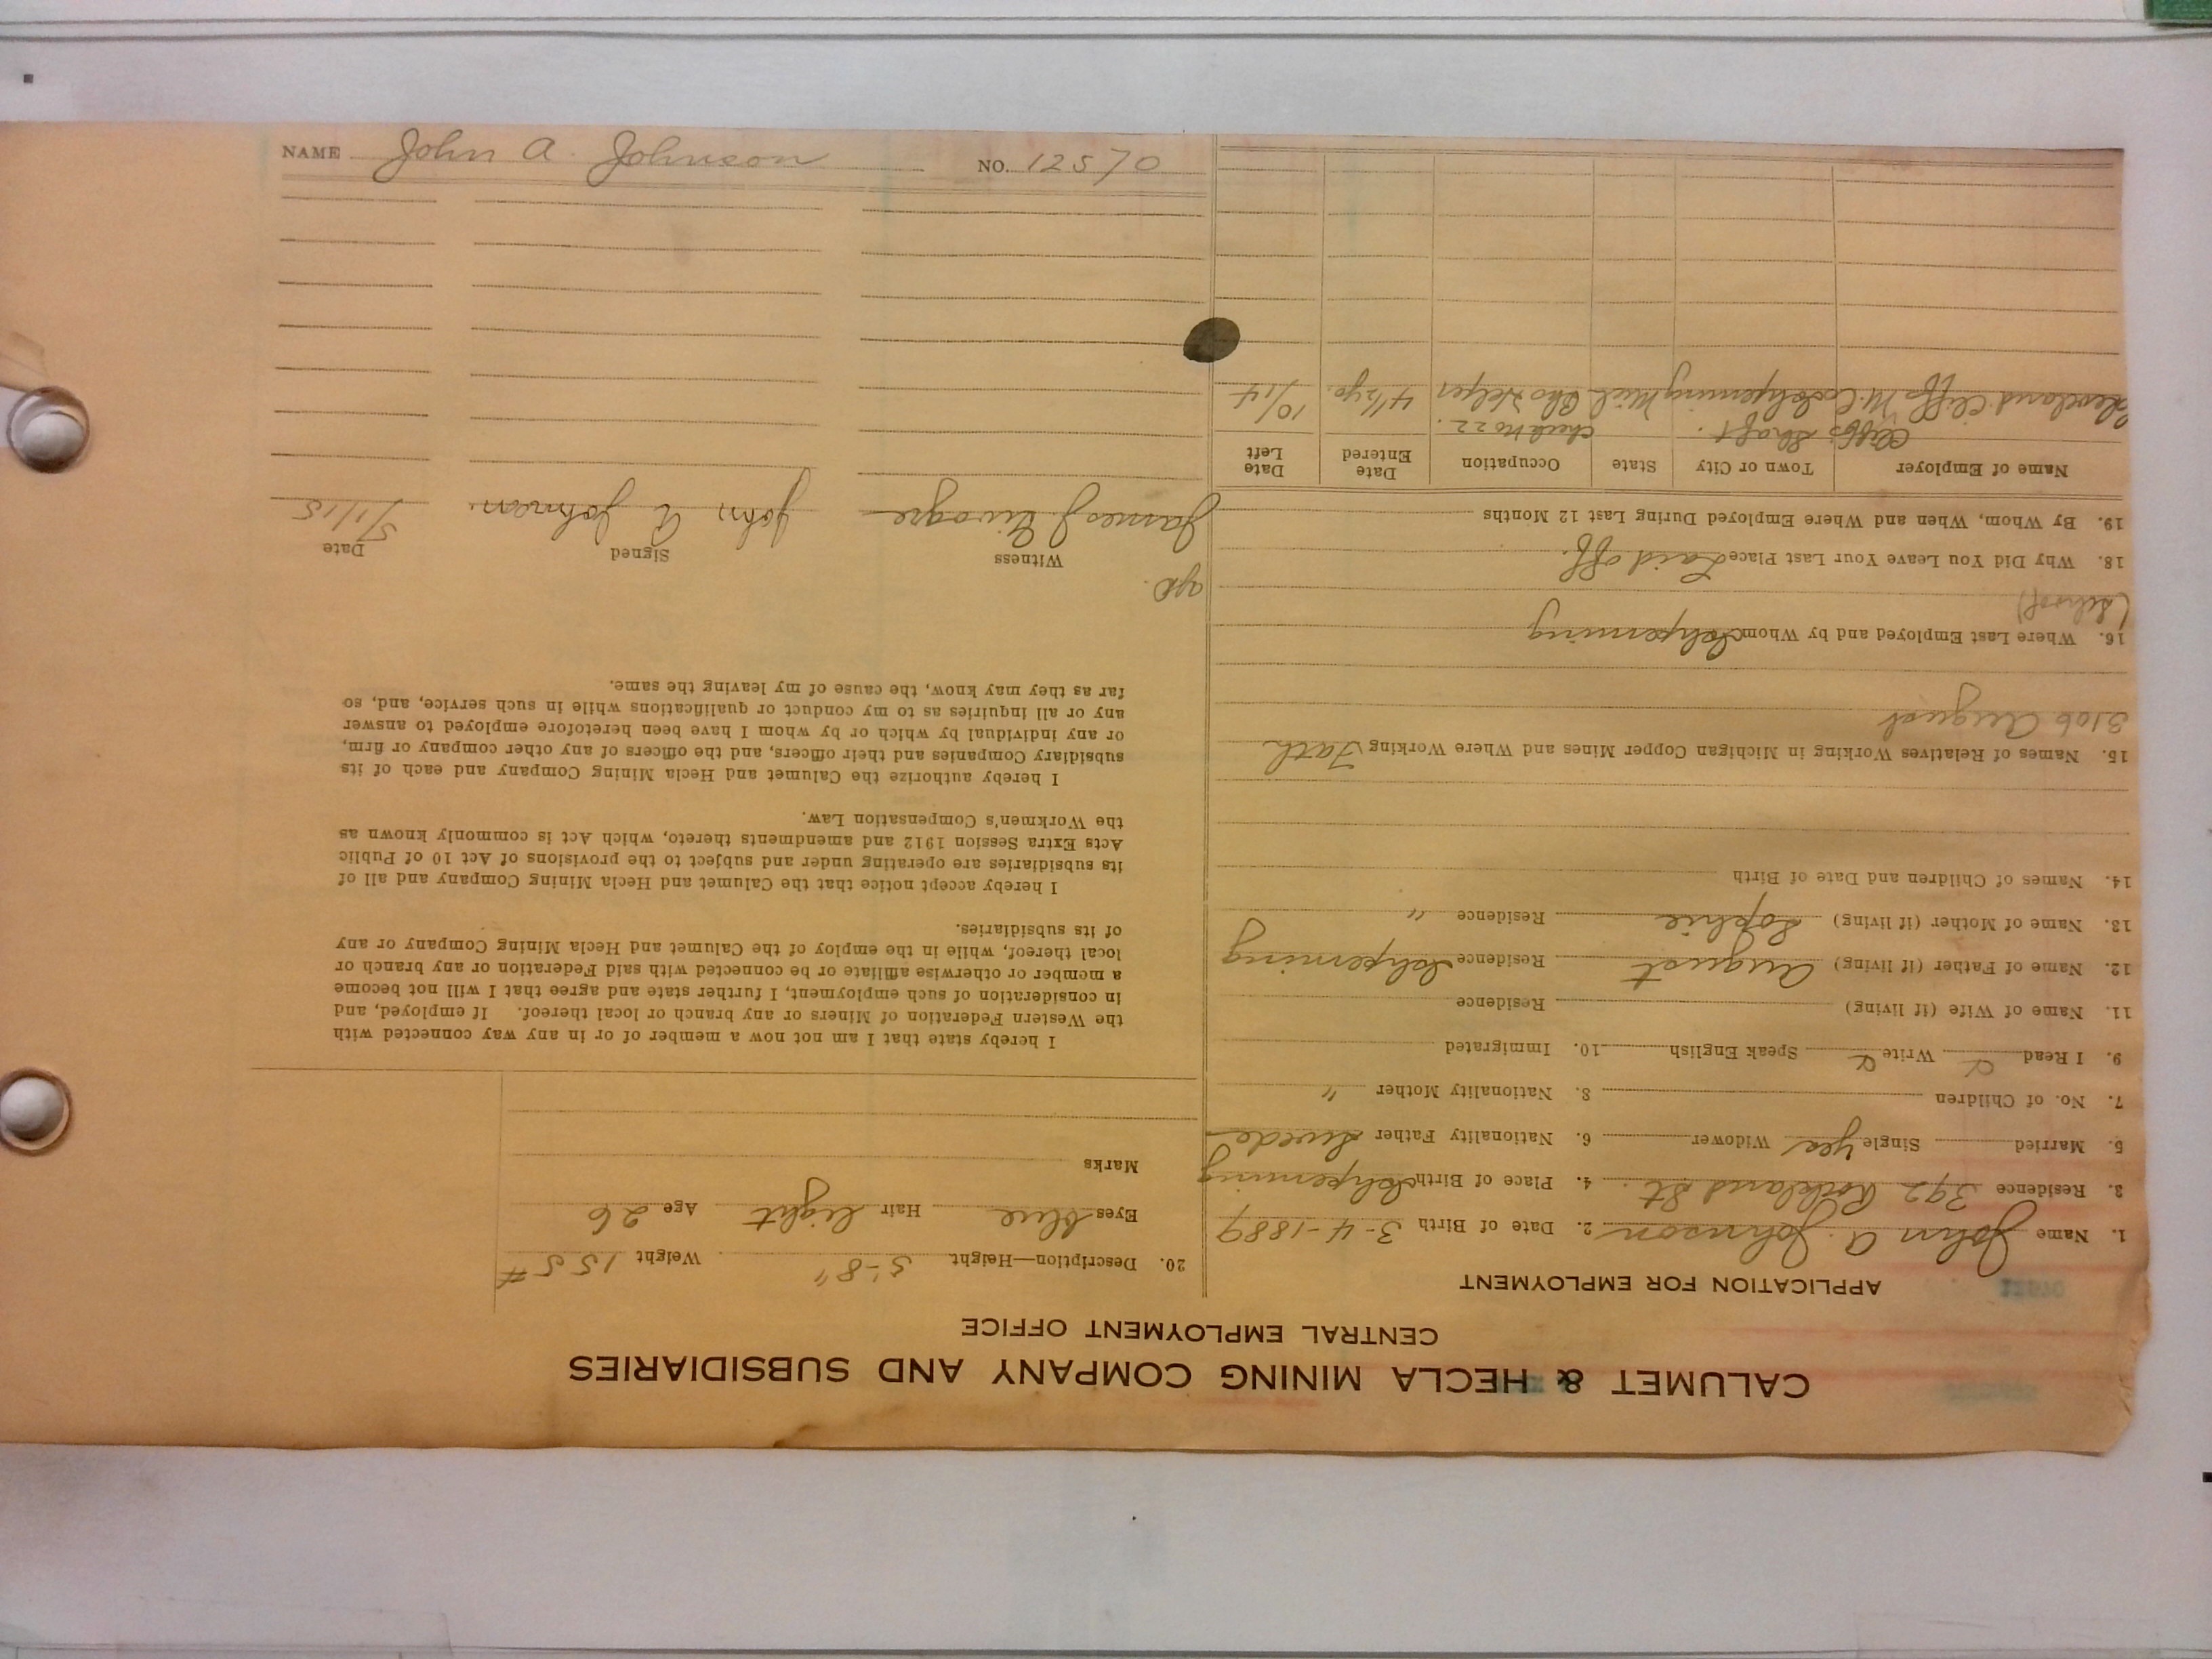 CALUMET & HECLA MINING COMPANY AND SUBSIDIARIES
CENTRAL EMPLOYMENT OFFICE
APPLICATION FOR EMPLOYMENT
1. Name John A. Johnson 2. Date of Birth 3-4-1889
3. Residence 392 Rockland St. 4. Place of Birth Ishpeming
5. Married Single Yes Widower 6. Nationality Father Swede
7. No. of Children 8. Nationality Mother "
9. I Read Write Speak English 10. Immigrated
11. Name of Wife (if living) Residence
12. Name of Father (if living) August Residence Ishpeming
13. Name of Mother (if living) Sophie Residence "
14. Names of Children and Date of Birth
15. Names of Relatives Working in Michigan Copper Mines and Where Working Fath
3106 August
16. Where Last Employed and by Whom Ishpeming
18. Why Did You Leave Your Last Place Laid off.
19. By Whom, When and Where Employed During Last 12 Months
Name of Employer Town or City State Occupation Date Entered Date Left
Cliffs Shaft. check no 22.
Cleveland Cliffs M. Co Ishpeming Mich Helper 4 1/2 yo. 10/14
20. Description—Height 5'-8" Weight 155#
Eyes blue Hair light Age 26
Marks
I hereby state that I am not now a member of or in any way connected with
the Western Federation of Miners or any branch or local thereof. If employed, and
in consideration of such employment, I further state and agree that I will not become
a member or otherwise affiliate or be connected with said Federation or any branch or
local thereof, while in the employ of the Calumet and Hecla Mining Company or any
of its subsidiaries.
I hereby accept notice that the Calumet and Hecla Mining Company and all of
its subsidiaries are operating under and subject to the provisions of Act 10 of Public
Acts Extra Session 1912 and amendments thereto, which Act is commonly known as
the Workmen's Compensation Law.
I hereby authorize the Calumet and Hecla Mining Company and each of its
subsidiary Companies and their officers, and the officers of any other company or firm,
or any individual by which or by whom I have been heretofore employed to answer
any or all inquiries as to my conduct or qualifications while in such service, and, so
far as they may know, the cause of my leaving the same.
Witness Signed Date
James J. John A Johnson. 5/1/15
NAME John A. Johnson NO. 12570